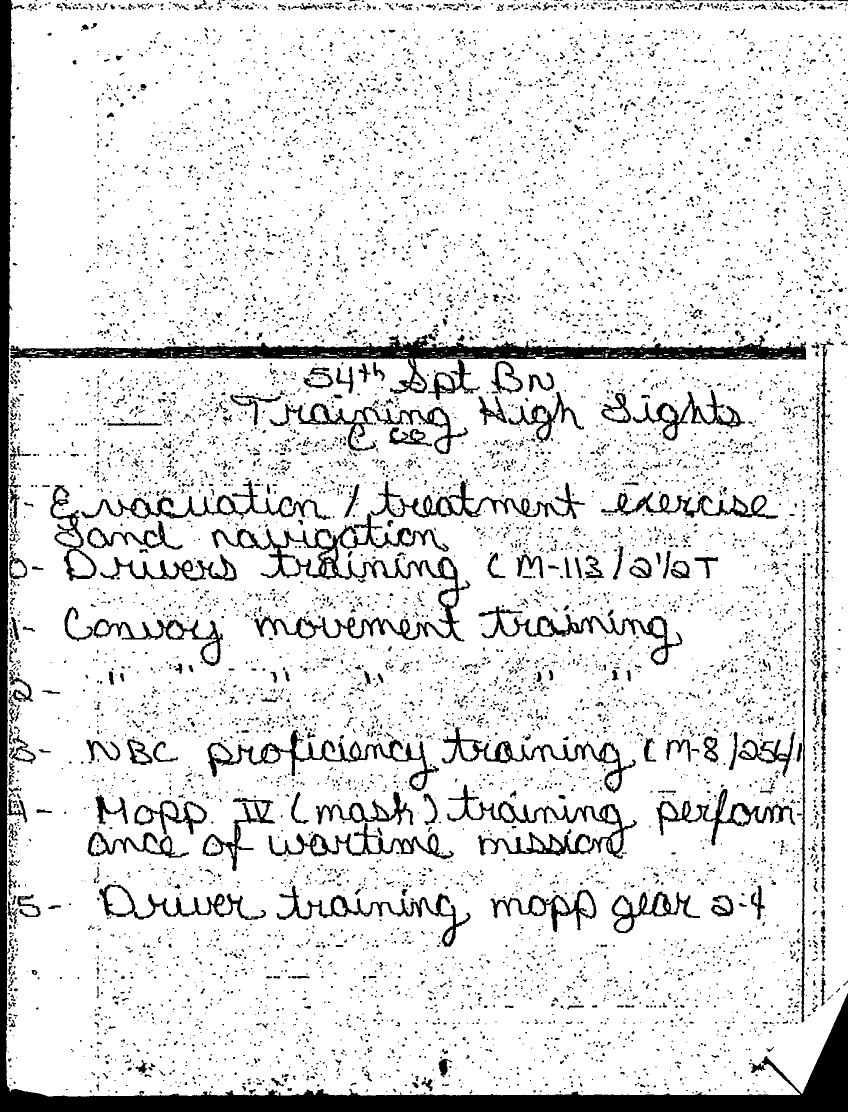 54th Spt Bn
Training High Lights
C co
- Evacuation / treatment exercise
Land navigation
0- Drivers training ( M-113 / 2 1/2 T
1- Convoy movement training
2- " " " " " "
3- NBC proficiency training ( M-8 / 256 / 1
4- Mopp IV (mask) training perform-
ance of wartime mission
5- Driver training mopp gear 2-4